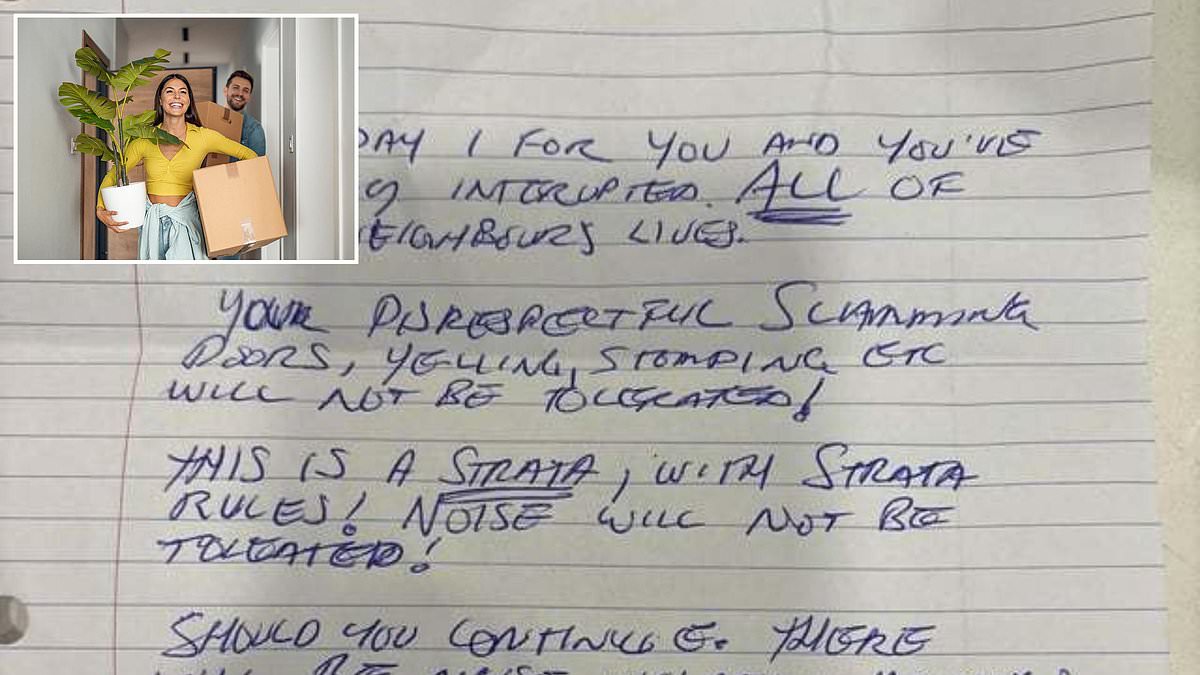 DAY 1 FOR YOU AND YOU'VE
INTERUPTED. ALL OF
EIGHBOURS LIVES.
YOUR DISRESPECTFUL SLAMMING
DOORS, YELLING, STOMPING ETC
WILL NOT BE TOLERATED!
THIS IS A STRATA, WITH STRATA
RULES! NOISE WILL NOT BE
TOLEATED!
SHOULD YOU CONTINUE. THERE
BE NOISE